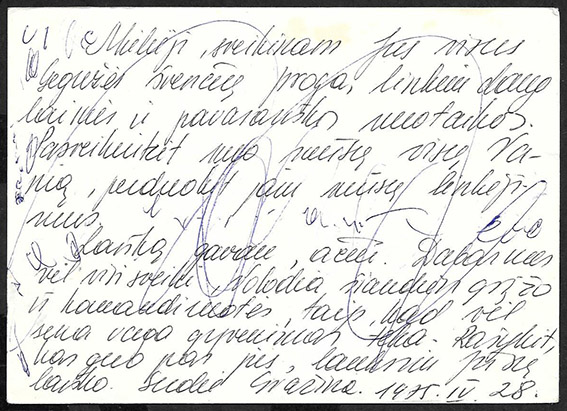 Mielieji, sveikinam Jus visus
Gegužės švenčių proga, linkim daug
laimės ir pavasariškos nuotaikos.
Pasveikinkit nuo mūsų visų Va-
, perduokit jam mūsų linkėji-
mus.
Laišką gavau, ačiū. Dabar mes
vėl visi sveiki, Volodia šiandien grįžo
iš komandiruotės, taip, kad vėl
sena vaga gyvenimas teka. Rašykit,
kas gero pas jus, lauksim jūsų
laiško. Sudie Gražina. 1975. IV. 28.